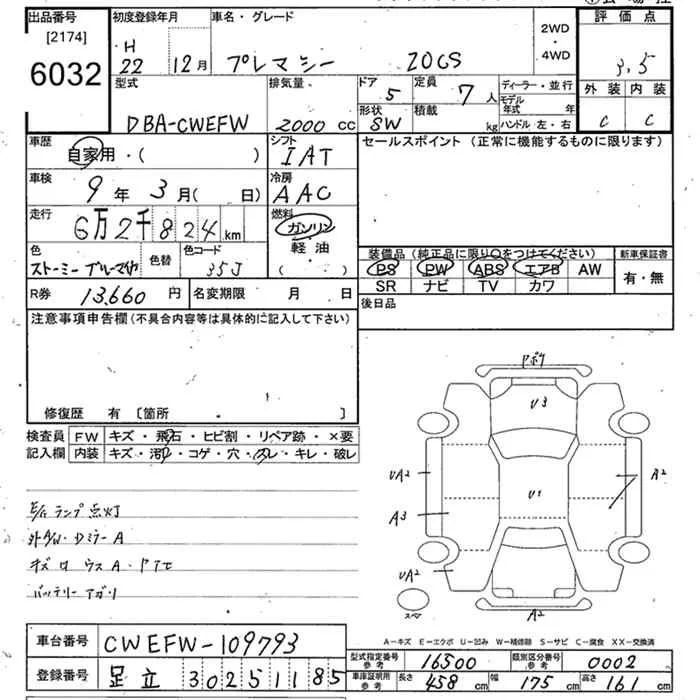 出品番号 初度登録年月 車名・グレード 2WD・4WD 評価点
[2174]
6032
H22 12月 プレマシー 20CS 3.5
型式 排気量 ドア 定員 ディーラー・並行 外装 内装
DBA-CWEFW 2000 cc 5 7人 モデル年式 年 C C
形状 積載 kg ハンドル 左・右
SW
車歴 シフト セールスポイント (正常に機能するものに限ります)
自家用・( ) IAT
車検 冷房
9年3月(日) AAC
走行 燃料
6万2千824km ガソリン
軽油
( )
色 色替 色コード
ストーミーブルーマイカ 35J
装備品(純正品に限り○をつけてください) 新車保証書
PS PW ABS エアB AW 有・無
SR ナビ TV カワ
R券 13,660円 名変期限 月 日 後日品
注意事項申告欄(不具合内容等は具体的に記入して下さい)
修復歴 有 〔箇所 〕
検査員 FW キズ・飛石・ヒビ割・リペア跡・×要
記入欄 内装 キズ・汚れ・コゲ・穴・スレ・キレ・破レ
E/Gランプ点灯
バッテリーアガリ
U3
UA2 U1 A2
A3
UA2
A2
A−キズ E−エクボ U−凹み W−補修跡 S−サビ C−腐食 XX−交換済
車台番号 CWEFW-109793
登録番号 足立 302 5 1185
型式指定番号 参考 16500 類別区分番号 参考 0002
車庫証明用 参考 長さ 458 cm 幅 175 cm 高さ 161 cm